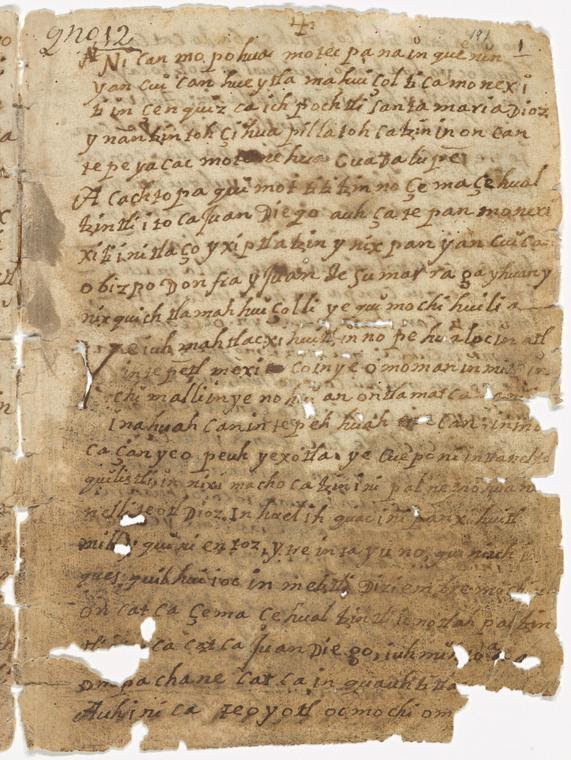 181 1
Ni can mo pohua motec pa na in que nin
yan cui can hue ytla ma hui çol ti ca mo nex i
ti in çen quiz ca ich poch tli santa maria Dioz
y nan tzin toh çi hua pilla toh ca tzin in on can
te pe ya cac mote ne hua Guadalupe
A cach to pa qui mot ti ti tzin no çe ma çe hual
tzin tli i to ca Juan Diego auh ça te pan mo nexi
xiti in i tla ço y xi ptla tzin y nix pan yan cui ca
obizpo Don fra y Juan de sumar ra ga yhuan y
nix quich tla mah hui çolli ye qui mo chi hui li a
Ye iuh mah tlac xi huitl in no pe hualoc in atl
in te petl mexi co in ye o mo man in mitl in
chi malli in ye no hui an on tla mat ca
Inahuah can in te peh huah can; in mo
ca çan ye o peuh ye xotla, ye cue poni in tla nel to
quilistli, in nixi macho ca tzin in i pal ne mo huan
nelli teotl Dioz. In huel ih quac in i pan xi huitl
mill y qui ni en toz, y tre in ta y u no, qui niuh
quez quil hui ioc in metztli Diziembre
on cat ca çe ma çe hual tzin tli ic no tlah pal tzin
ca cat ca Juan Diego, iuh mi
om pa chane cat ca in quauh ti tla
Auh in i ca teoyotl oc mo chi om